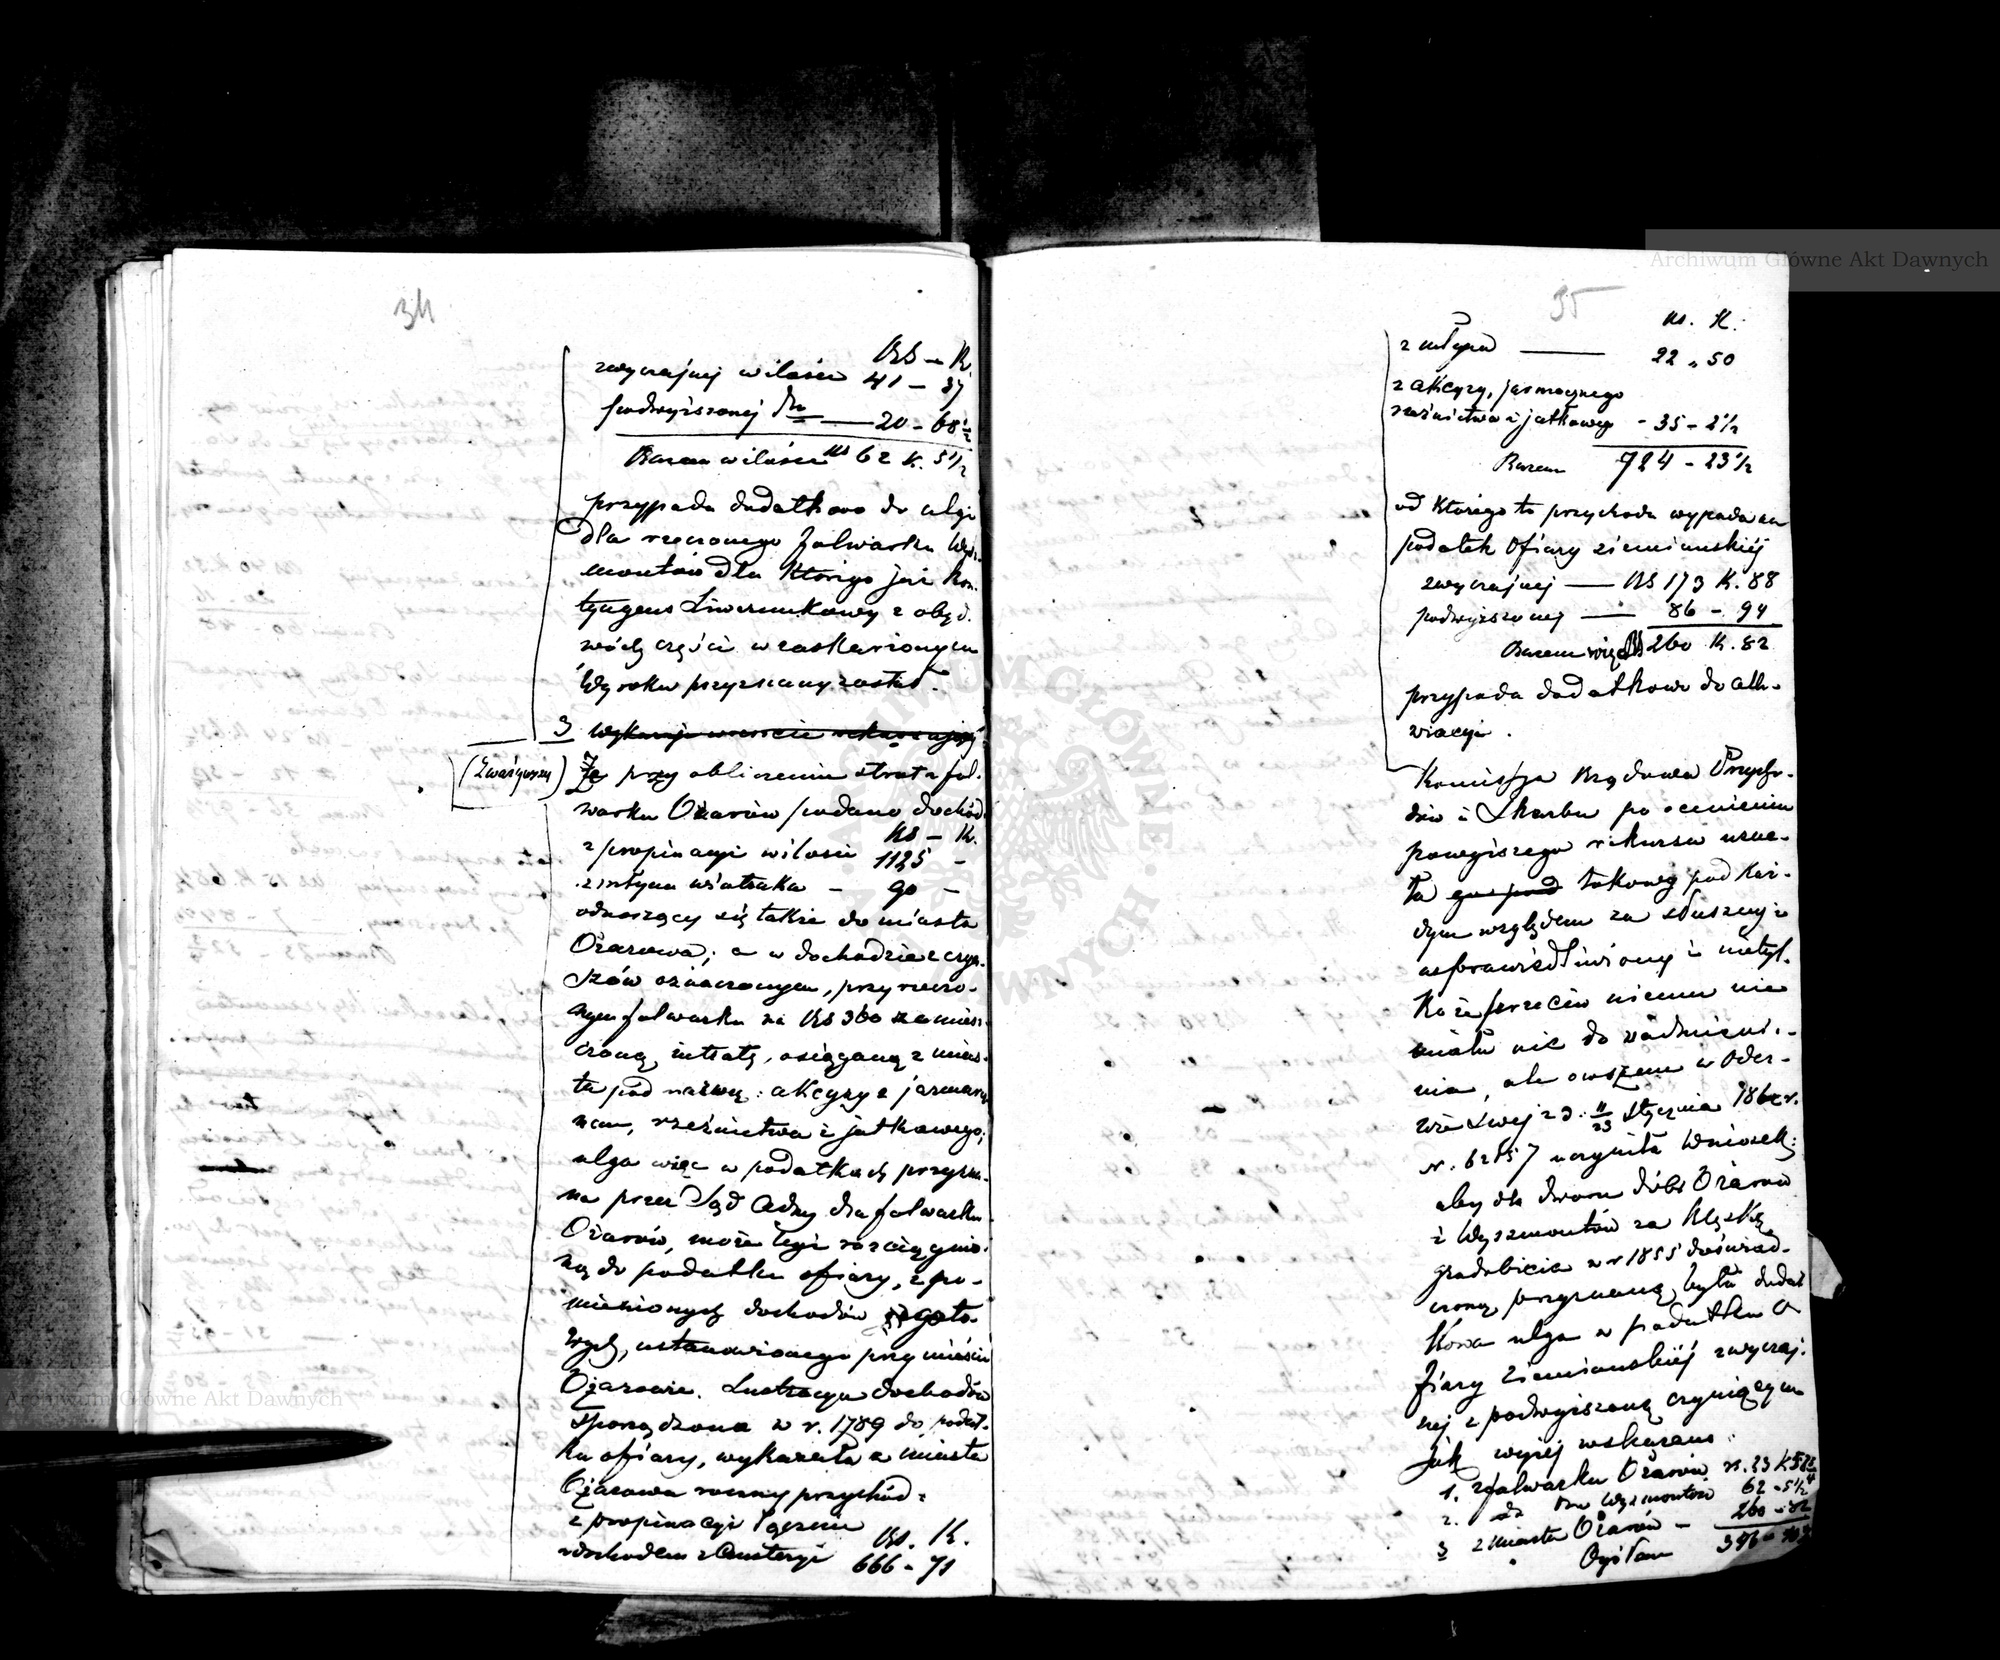 34
RS – K.
zwyczajnej w ilości 41 – 37
podwyższonej dto — 20 – 68 1/2
Razem w ilości RS 62 K. 5 1/2
przypada dodatkowo do ulgi
dla rzeczonego folwarku Wysz-
montów dla którego już kon-
tyngens Liwerunkowy z obyd-
wóch części w zaskarżonym
Wyroku przyznany został.
3 Wykazuje wreszcie rekurrujący
(Zważywszy) Że przy obliczeniu strat z fol-
warku Ożarów podano dochód
RS – K.
z propinacyi w ilości 1125 –
z młyna wiatraka – 90 –
odnoszący się także do miasta
Ożarowa; a w dochodzie z czyn-
szów oznaczonym, przy rzeczo-
nym folwarku na RS 360 zamiesz-
czoną intratę, osiąganą z mias-
ta pod nazwą: akcyzy z jarmarcz-
nem, rzeźnictwa i jatkowego;
ulga więc w podatkach przyzna-
na przez Sąd Adny dla folwarku
Ożarów, może być rozciągnio-
ną do podatku ofiary, z po-
mienionych dochodów
ustanowionego przy mieście
Ożarowie. Lustracya dochodów
sporządzona w r. 1789 do podat-
ku ofiary, wykazała z miasta
Ożarowa roczny przychód:
z propinacyi łącznie RS. K.
z dochodem z Austeryi 666 – 71
35
RS. K.
z młyna — 22 „ 50
z akcyzy, jarmarcznego
rzeźnictwa i jatkowego – 35 – 2 1/2
Razem 724 – 23 1/2
od którego to przychodu wypada na
podatek Ofiary ziemiańskiéj
zwyczajnej — RS 173 K. 88
podwyższonej — 86 – 94
Razem więc RS 260 K. 82
przypada dodatkowo do alle-
wiacyi.
Komissya Rządowa Przycho-
dów i Skarbu po ocenieniu
powyższego rekursu uzna-
ła takowy pod każ-
dym względem za słuszny i
usprawiedliwiony i nietyl-
ko że przeciw niemu nie
miała nic do nadmieni-
nia, ale owszem w Odez-
wie swej z d. 11/23 Stycznia 186 r.
N. 62857 uczyniła wniosek;
aby dla dworu dóbr Ożarów
i Wyszmontów za klęskę
gradobicia w r 1855 doświad-
czoną przyznaną była dodat-
kowa ulga w podatku O-
fiary Ziemiańskiéj zwyczaj-
nej z podwyższoną czyniącym
jak wyżej wskazano:
1. z folwarku Ożarów rs. 23 k
2. dto Wyszmontów 62 – 5 1/2
3 z miasta Ożarów – 260 – 82
Ogółem
Archiwum Główne Akt Dawnych
Archiwum Główne Akt Dawnych
ARCHIWUM GŁÓWNE AKT DAWNYCH